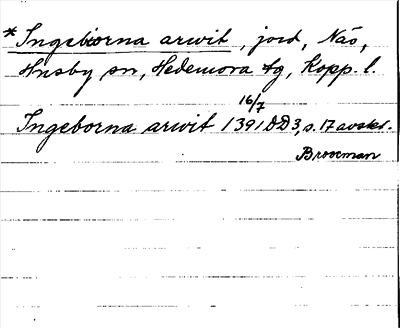 *Ingeborna arwit, jord, Näs,
Husby sn, Hedemora tg, Kopp. l.
16/7
Ingeborna arwit 1391 DD3, s. 17 avskr.
Broocman